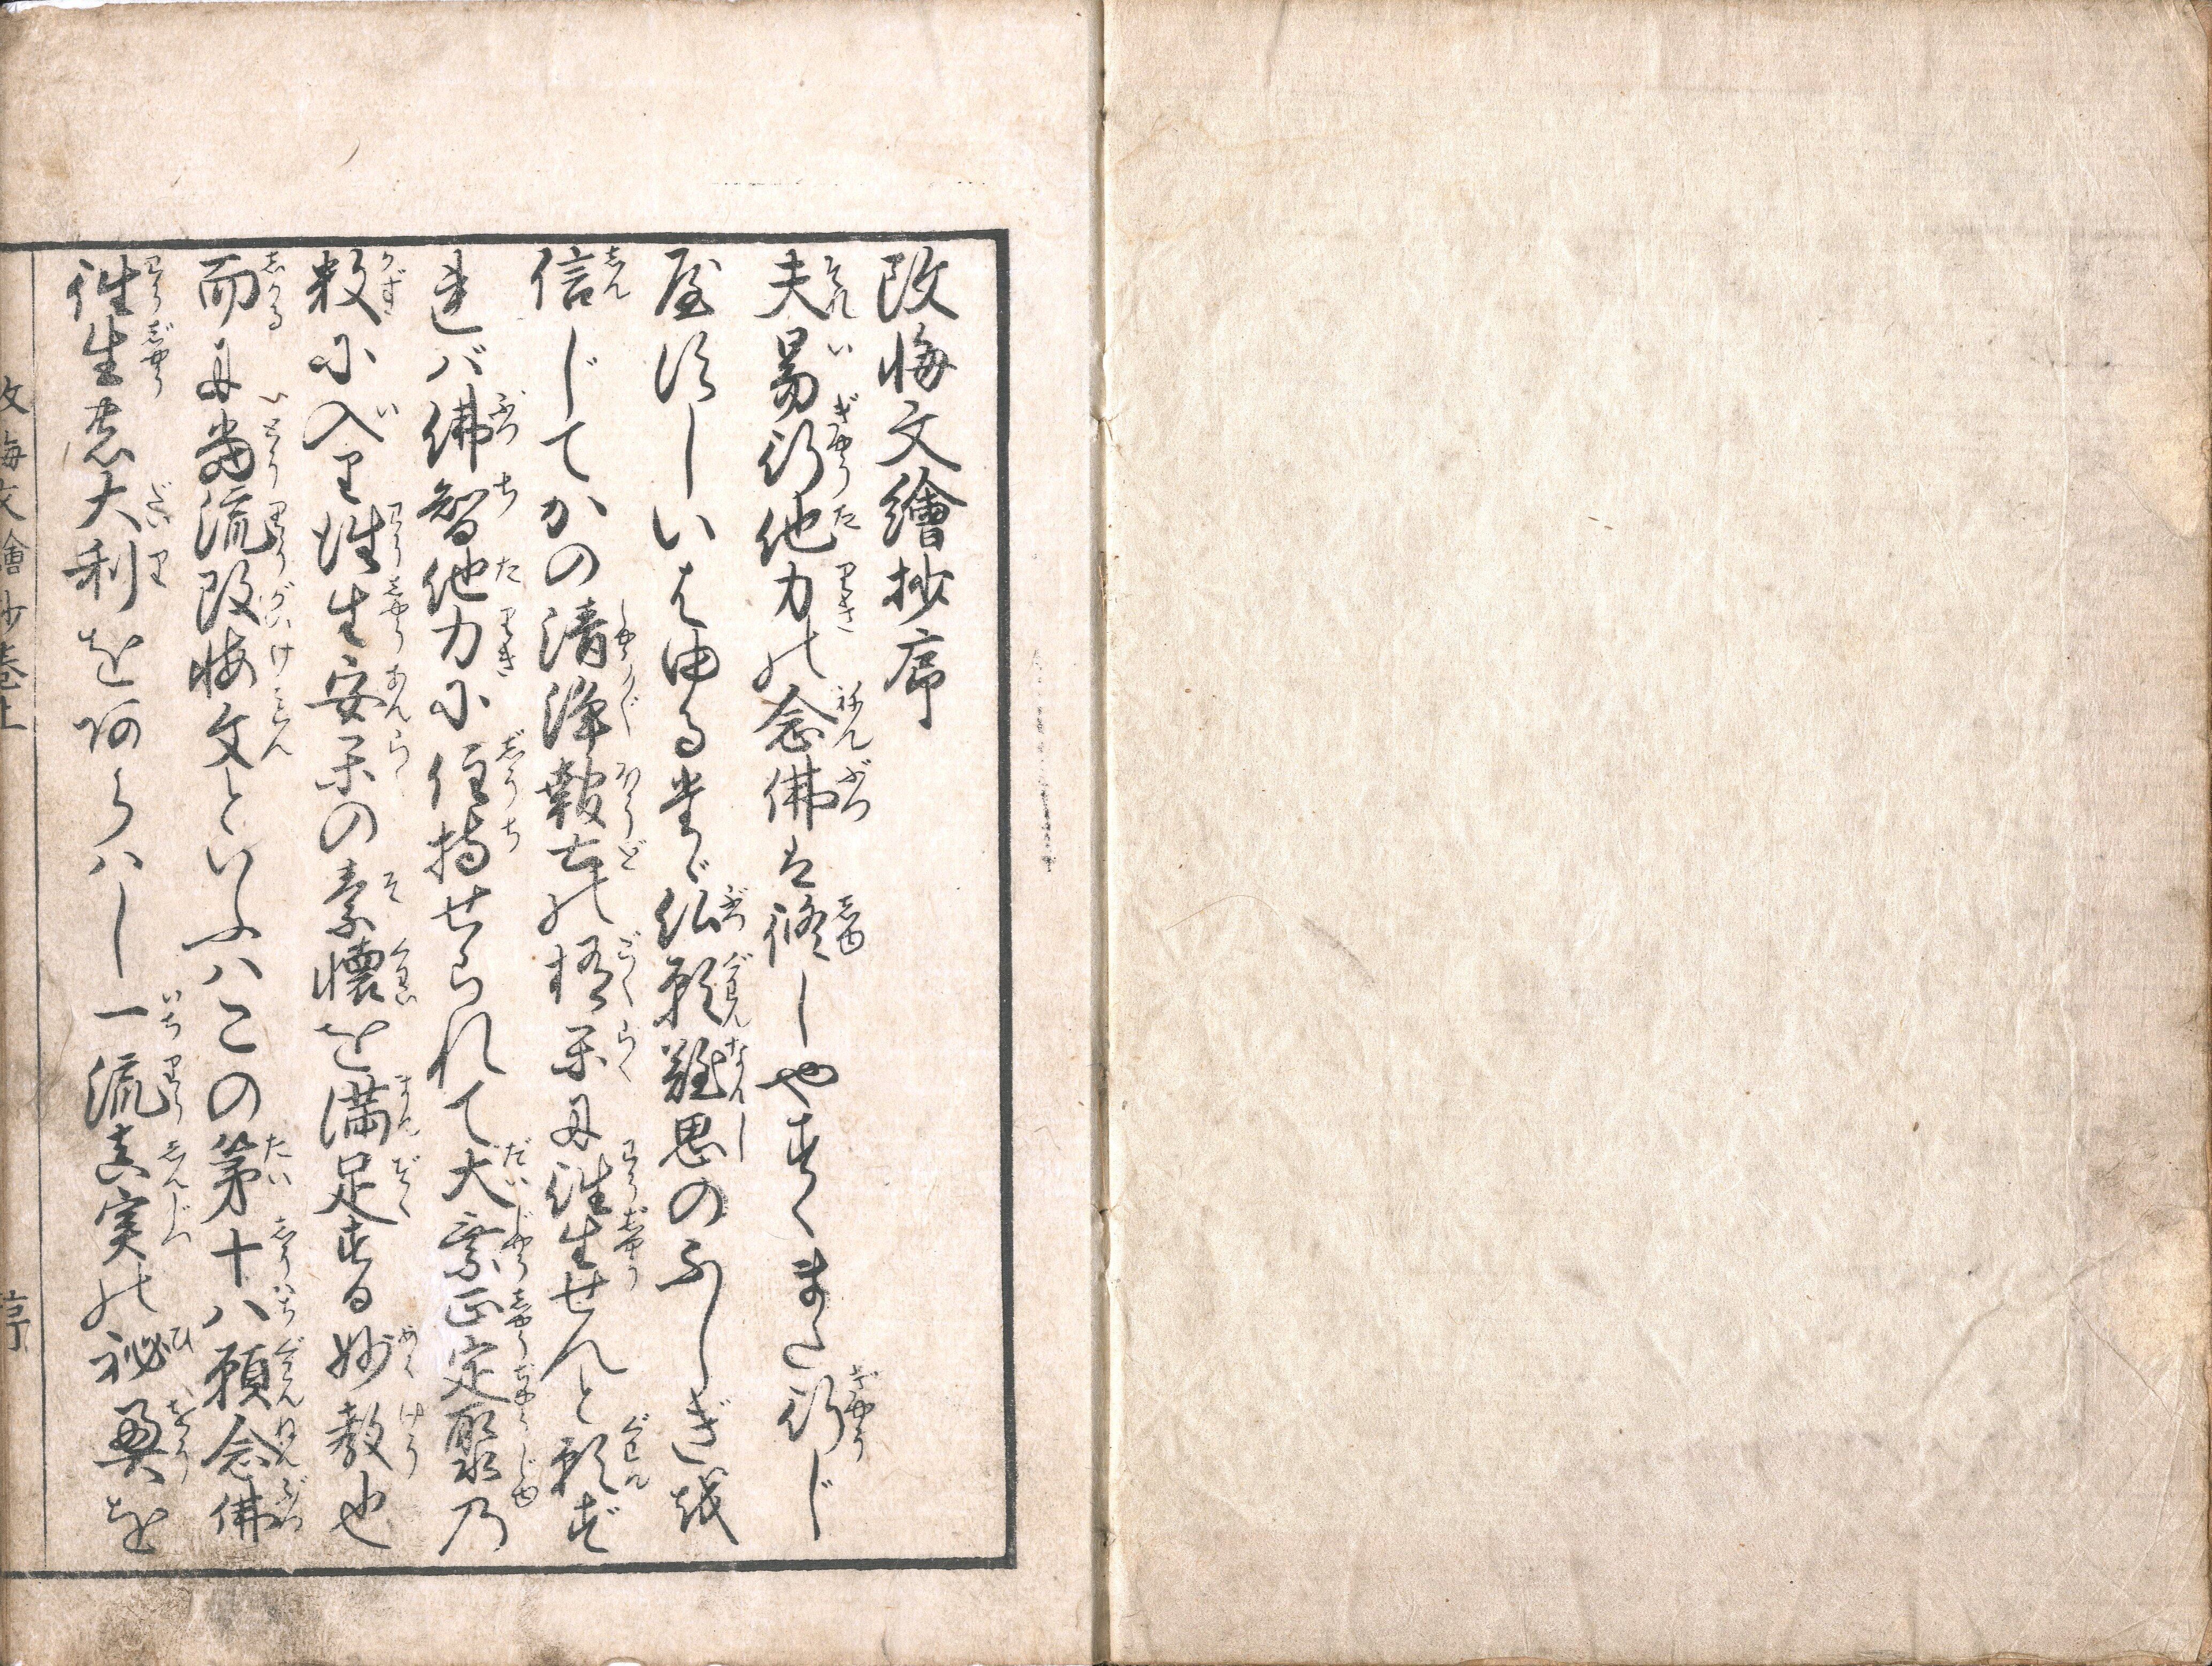 改悔文繪抄序
夫易行他力の念佛は修しやすくまた行じ
屋すしいはゆる是ぞ仏願難思のふしぎ越
信じてかの清浄報土の極楽に往生せんと願ず
れバ佛智他力に住持せられて大乗正定聚乃
数に入り往生安楽の素懐を満足する妙教也
而に當流改悔文といふハこの第十八願念佛
往生の大利をあらハし一流真実の秘奥を
改悔文繪抄巻上 序